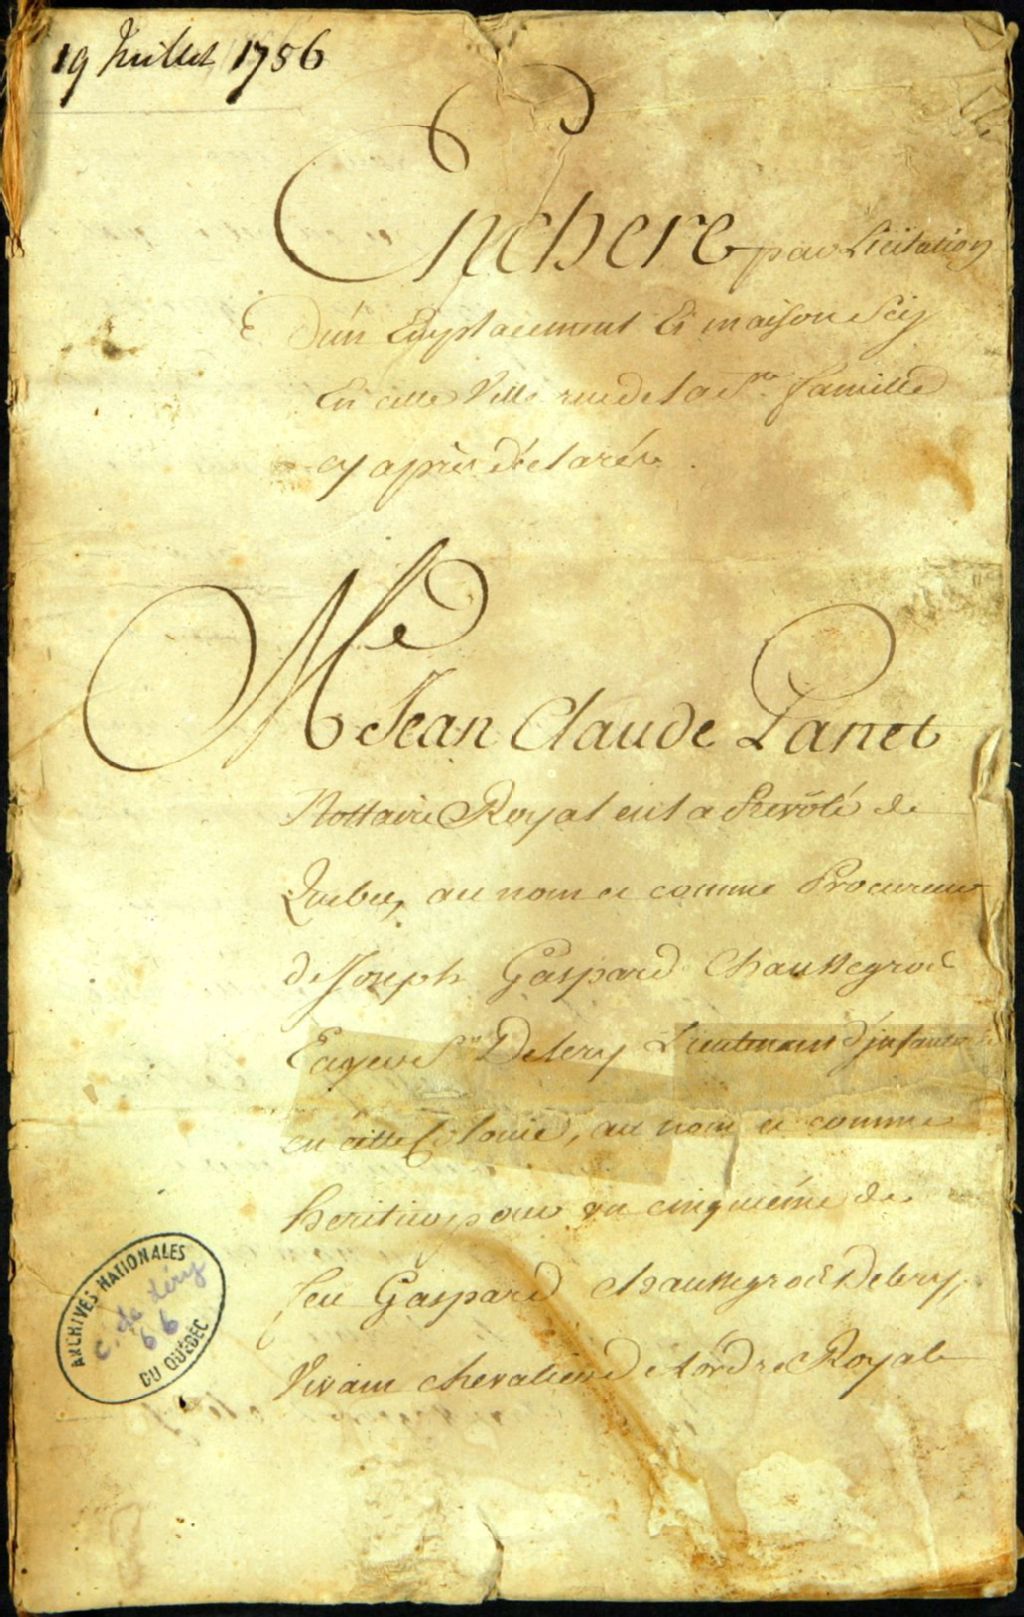 19 Juillet 1756
Enchere par Licitation
D'un Emplacement Et maison Scis
En cette Ville rue de la Ste. famille
cy après déclarée.
Me Jean Claude Panet
Nottaire Royal en la Prevôté de
Quebec, au nom et comme Procureur
de Joseph Gaspard Chaussegros
Ecuyer Sr. Delery Lieutenant d'jnfanterie
en cette Colonie, au nom et comme
heritier pour un cinquiéme de
feu Gaspard Chaussegros Delery,
Vivant chevalier de l'ordre Royal
ARCHIVES NATIONALES
C. de Léry
66
DU QUÉBEC